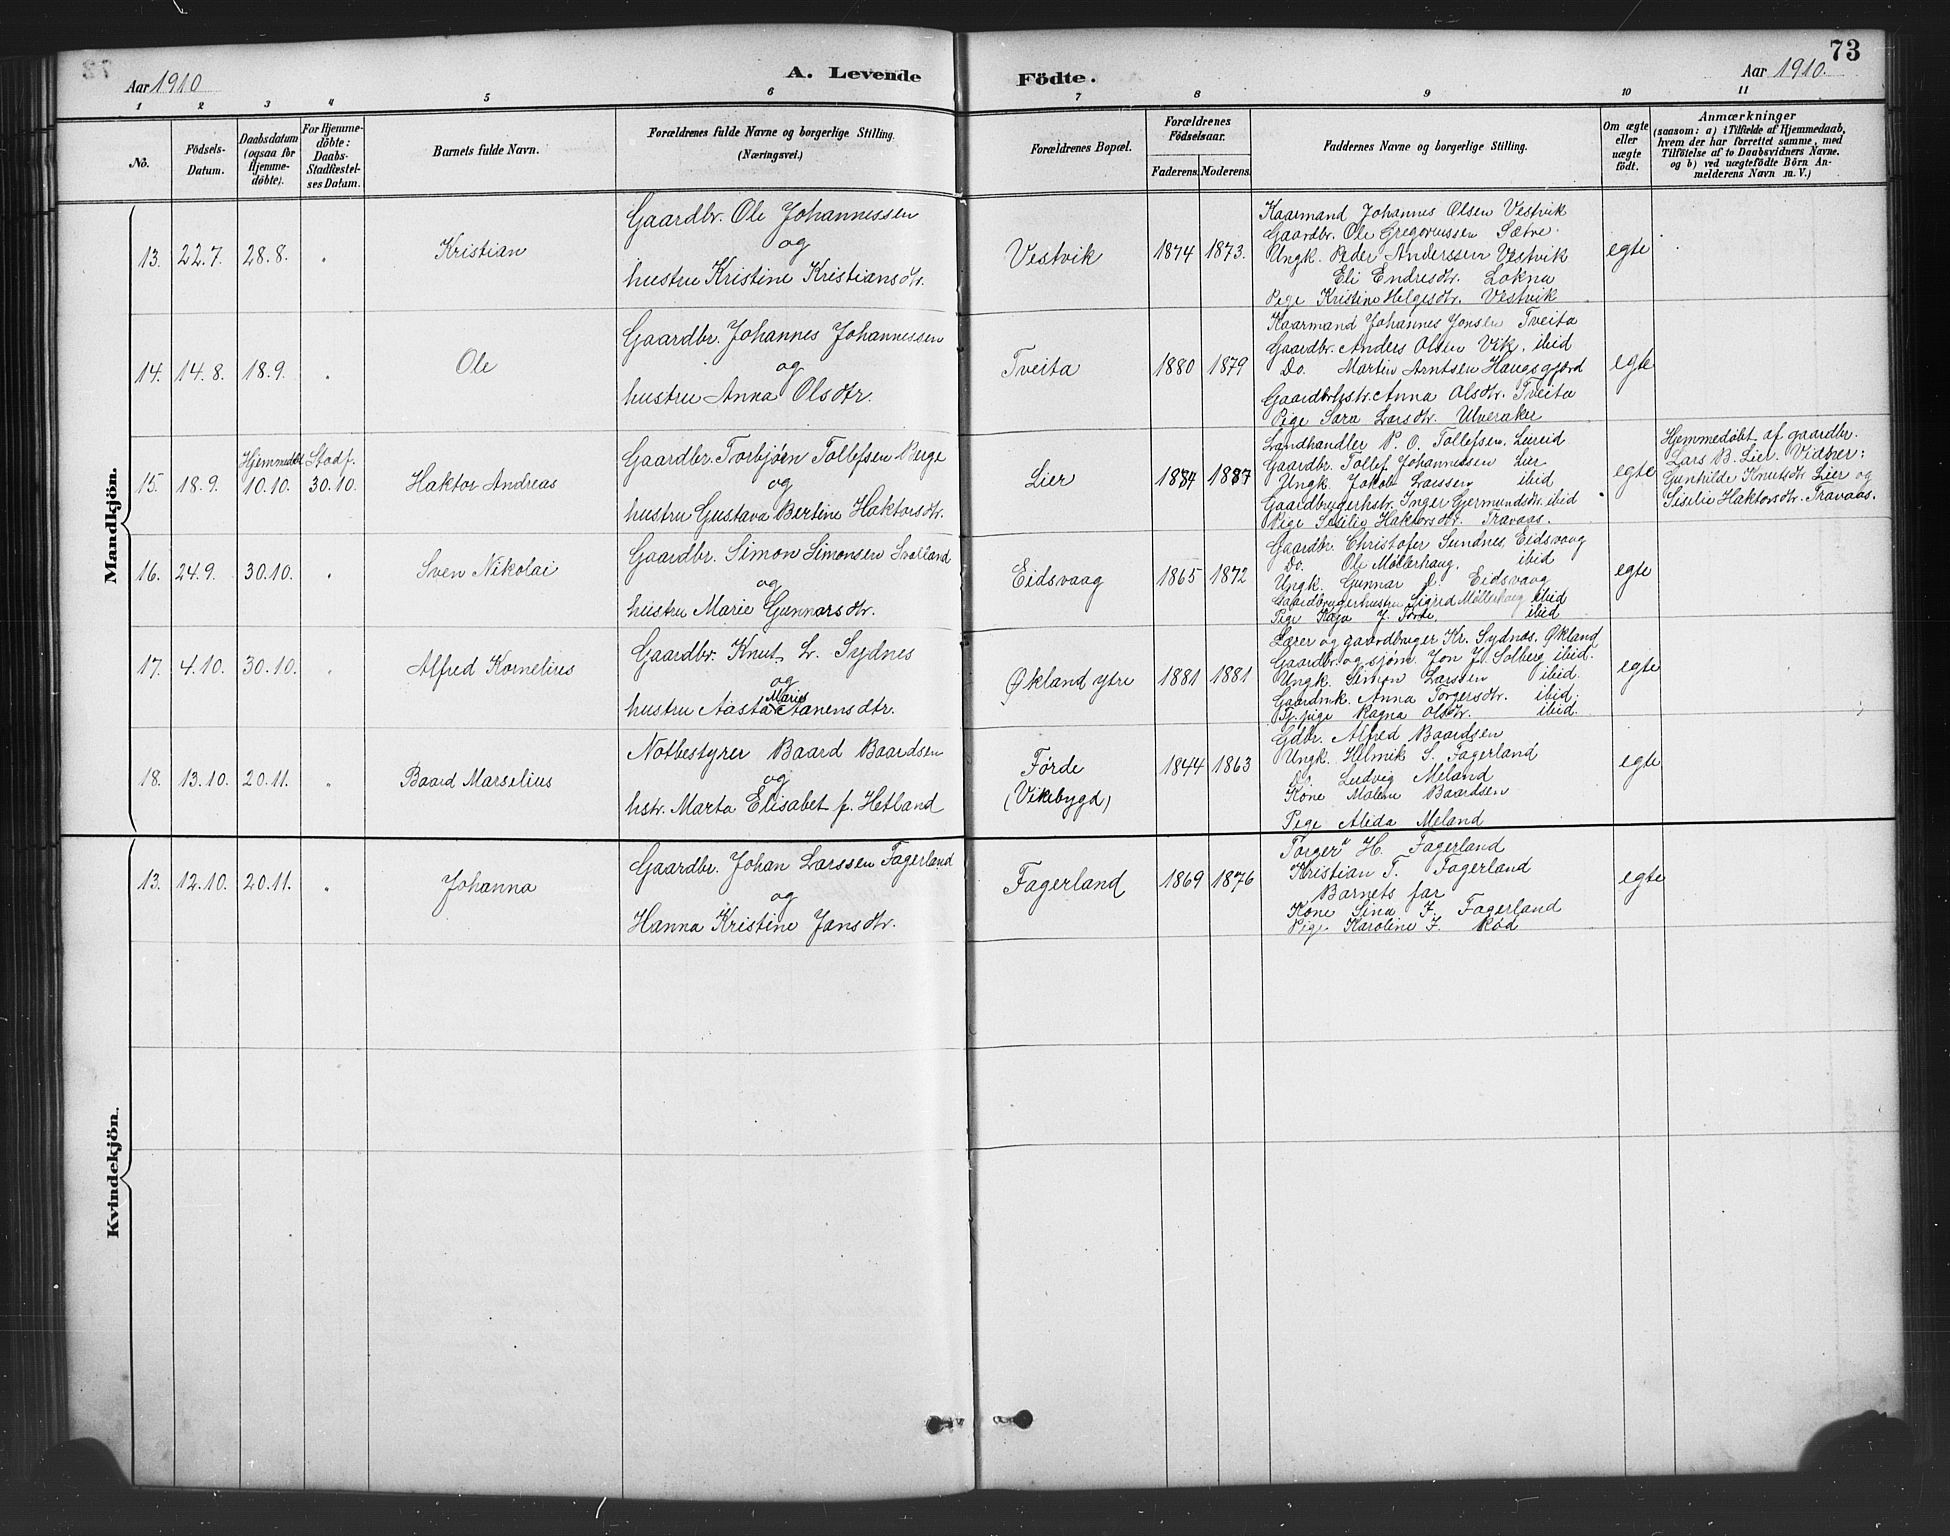 73
Aar 1910
A. Levende Födte.
Aar 1910.
1 2 3 4 5 6 7 8 9 10 11
No.
Födsels-Datum.
Daabsdatum (ogsaa for Hjemme-döbte).
For Hjemme-döbte: Daabs-Stadfæstel-ses Datum.
Barnets fulde Navn.
Forældrenes fulde Navne og borgerlige Stilling.
(Næringsvei.)
Forældrenes Bopæl.
Forældrenes Födselsaar.
Faderens. Moderens.
Faddernes Navne og borgerlige Stilling.
Om ægte eller uægte födt.
Anmærkninger
(saasom: a) i Tilfælde af Hjemmedaab,
hvem der har forrettet samme, med
Tilföielse af to Daabsvidners Navne,
og b) ved uægtefödte Börn An-
melderens Navn m. V.)
Mandkjön.
13. 22.7. 28.8. " Kristian
Gaardbr. Ole Johannessen
og
hustru Kristine Kristiansdtr.
Vestvik 1874 1873.
Kaarmand Johannes Olsen Vestvik
Gaardbr. Ole Gregoriussen Sætre.
Ungk. Peder Anderssen Vestvik
Eli Endresdtr. Lokna
Pige Kristine Helgesdtr. Vestvik
egte
14. 14.8. 18.9. " Ole
Gaardbr. Johannes Johannessen
og
hustru Anna Olsdtr.
Tveita 1880 1879
Kaarmand Johannes Jonsen Tveita
Gaardbr. Anders Olsen Vik. ibid
Do. Martin Arntsen Haugsgjerd
Gaardbrhstr. Anna Olsdtr. Tveita
Pige Sara Larsdtr. Ulveraker
egte
15. 18.9. Hjemmedøbt 10.10. Stadf. 30.10. Haktor Andreas
Gaardbr. Torbjørn Tollefsen Berge
og
hustru Gustava Bertine Haktorsdtr.
Lier 1884 1887
Landhandler P. O. Tollefsen, Leireid
Gaardbr. Tollef Johannessen Lier
Ungk. Jakob Larssen ibid
Gaardbrugerhstr. Inger Gjermundsdtr. ibid
Pige Sesilie Haktorsdtr. Travaas.
egte
Hjemmedøbt af gaardbr.
Lars B. Lier. Vidner:
Gunhilde Knutsdtr Lier og
Sesilie Haktorsdtr. Travaas.
16. 24.9. 30.10. " Sven Nikolai
Gaardbr. Simon Simonsen Svolland
og
hustru Marie Gunnarsdtr.
Eidsvaag 1865 1872
Gaardbr. Christofer Sundnes, Eidsvaag
Do. Ole Møllerhaug, ibid
Ungk. Gunnar D. Eidsvaag
Gaardbrugerhustru Sigrid Møllerhaug ibid
Pige Kaja J. Førde ibid
egte
17. 4.10. 30.10. " Alfred Kornelius
Gaardbr. Knut L. Sydnes
og
hustru Aasta Marie Aanensdtr.
Økland ytre 1881 1881
Lærer og gaardbruger Kr. Sydnes, Økland
Gaardbr. og sjøm. Jon J. Solberg ibid.
Ungk. Simon Larssen ibid.
Gaardmk. Anna Torgersdtr. ibid.
Tj. pige Ragna Olsdtr. ibid.
egte
18. 13.10. 20.11. " Baard Marselius
Notbestyrer Baard Baardsen
og
hstr. Marta Elisabet f. Hetland
Førde
(Vikebygd)
1844 1863
Gdbr. Alfred Baardsen
Ungk. Helmik S. Fagerland
Do. Ludvig Meland
Kone Malene Baardsen
Pige Alida Meland
egte
Kvindekjön.
13. 12.10. 20.11. " Johanna
Gaardbr. Johan Larssen Fagerland
og
Hanna Kristine Jansdtr.
Fagerland 1869 1876
Torger H. Fagerland
Kristian T. Fagerland
Barnets far
Kone Sina F. Fagerland
Pige Karoline J. Rød
egte